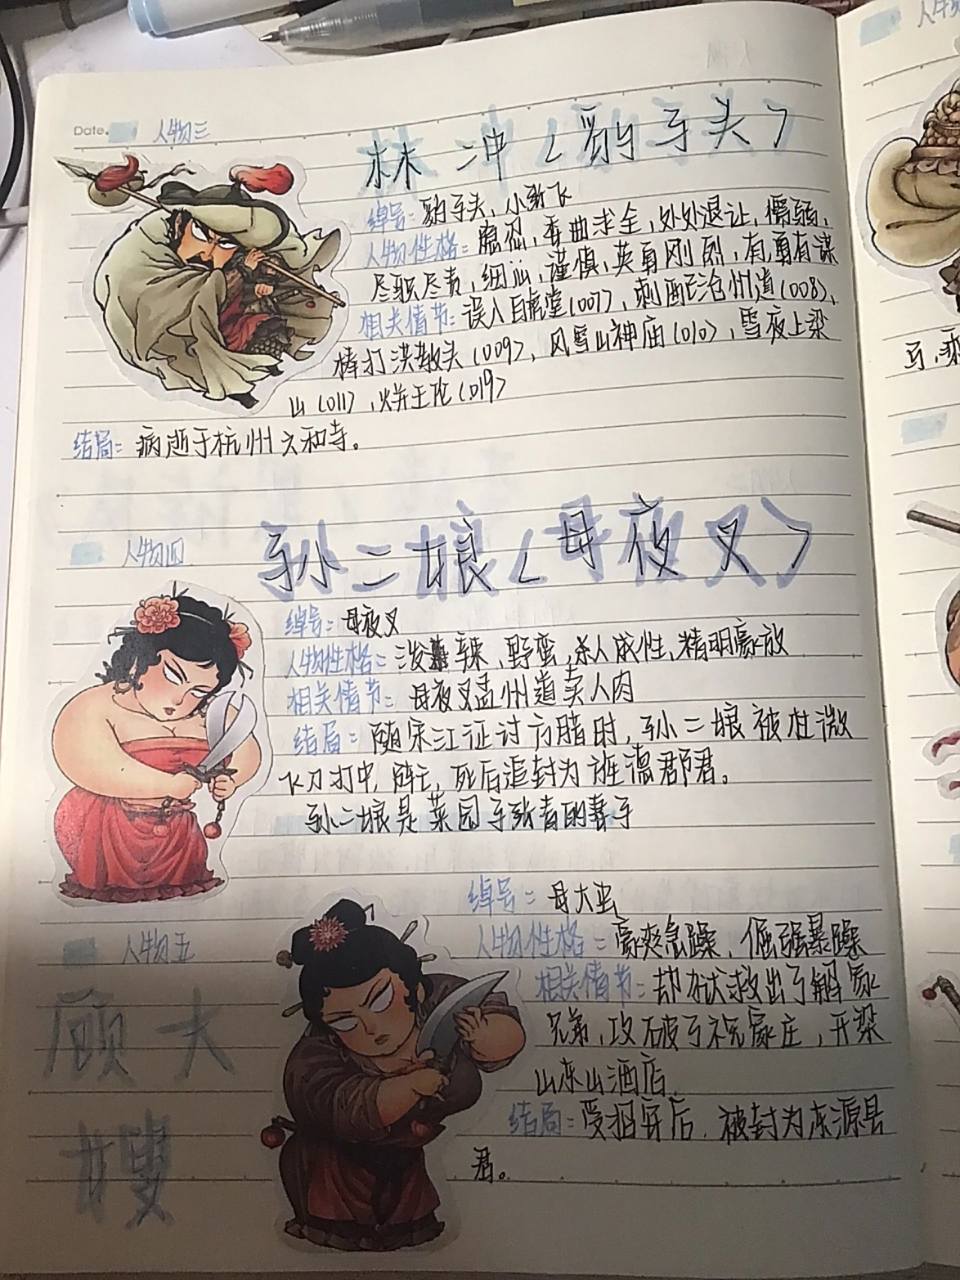 Date.
人物三
林冲（豹子头）
绰号：豹子头、小张飞
人物性格：隐忍，委曲求全，处处退让，懦弱，
尽职尽责，细心，谨慎，英勇刚烈，有勇有谋
相关情节：误入白虎堂（007），刺配沧州道（008），
棒打洪教头（009），风雪山神庙（010），雪夜上梁
山（011），火并王伦（019）
结局：病逝于杭州六和寺。
人物四
孙二娘（母夜叉）
绰号：母夜叉
人物性格：泼辣，野蛮，杀人成性，精明豪放
相关情节：母夜叉孟州道卖人肉
结局：随宋江征讨方腊时，孙二娘被杜微
飞刀打中，阵亡，死后追封为旌德郡君。
孙二娘是菜园子张青的妻子
人物五
顾大
嫂
绰号：母大虫
人物性格：豪爽急躁，倔强暴躁
相关情节：劫狱救出了解家
兄弟，攻破了祝家庄，开梁
山东山酒店。
结局：受招安后，被封为东源县
君。
人物